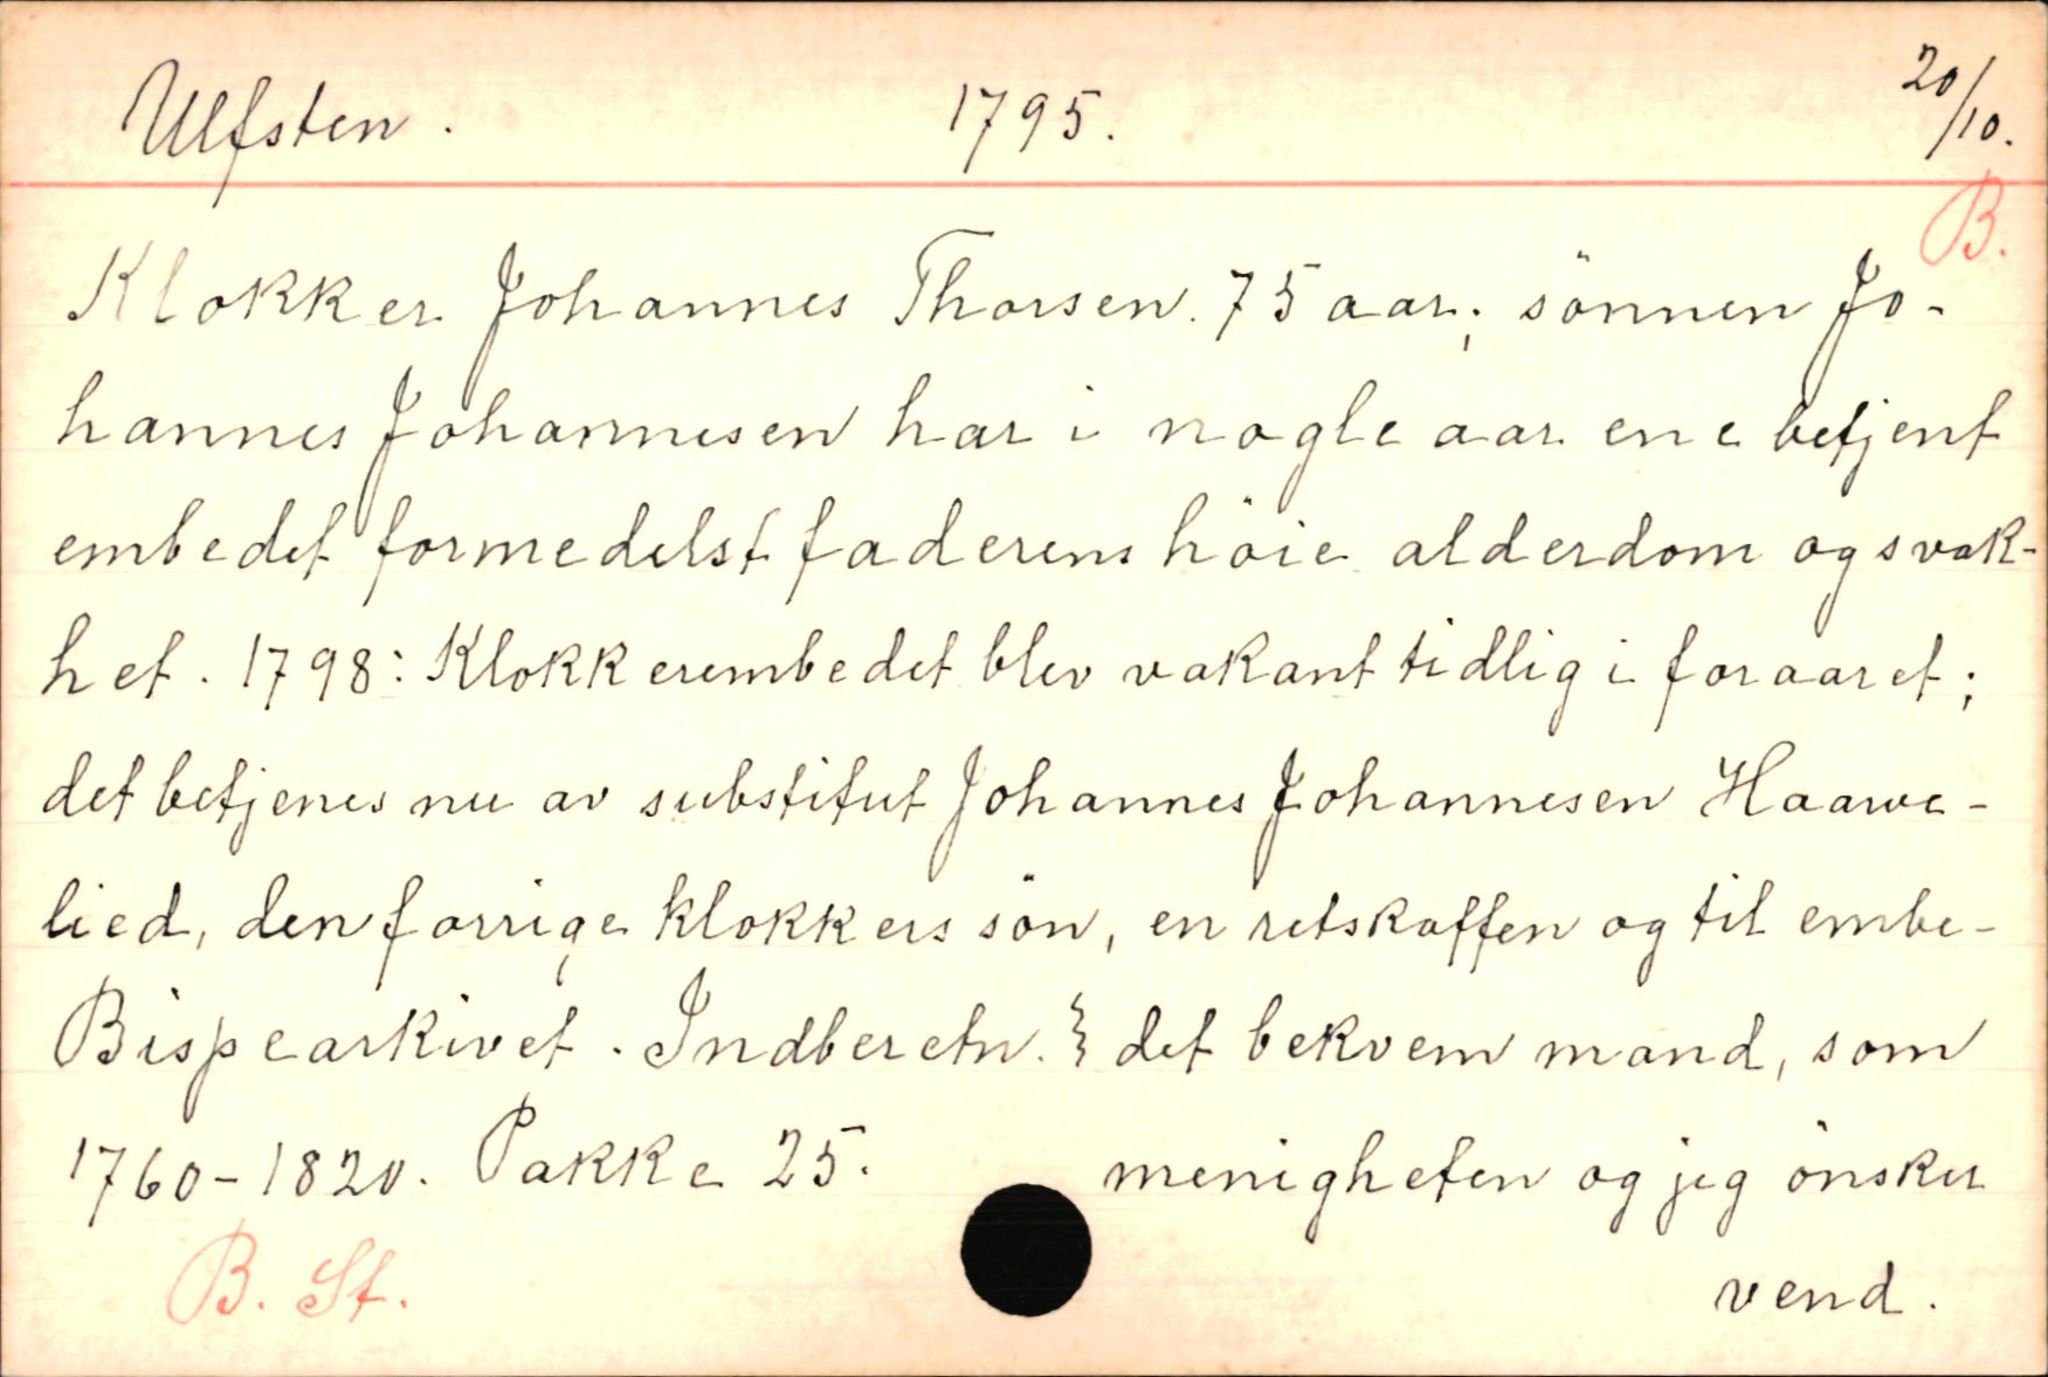 Ulfsten. 1795. 20/10.
B.
Klokker Johannes Thorsen. 75 aar; sönnen Jo-
hannes Johannesen har i nogle aar ene betjent
embedet formedelst faderens höie alderdom og svak-
het. 1798: Klokkerembedet blev vakant tidlig i foraaret;
det betjenes nu av substitut Johannes Johannesen Haave-
lied, den forrige klokkers sön, en retskaffen og til embe-
det bekvem mand, som
menigheten og jeg önsker
vend.
Bispearkivet. Indberetn.
1760-1820. Pakke 25.
B. St.